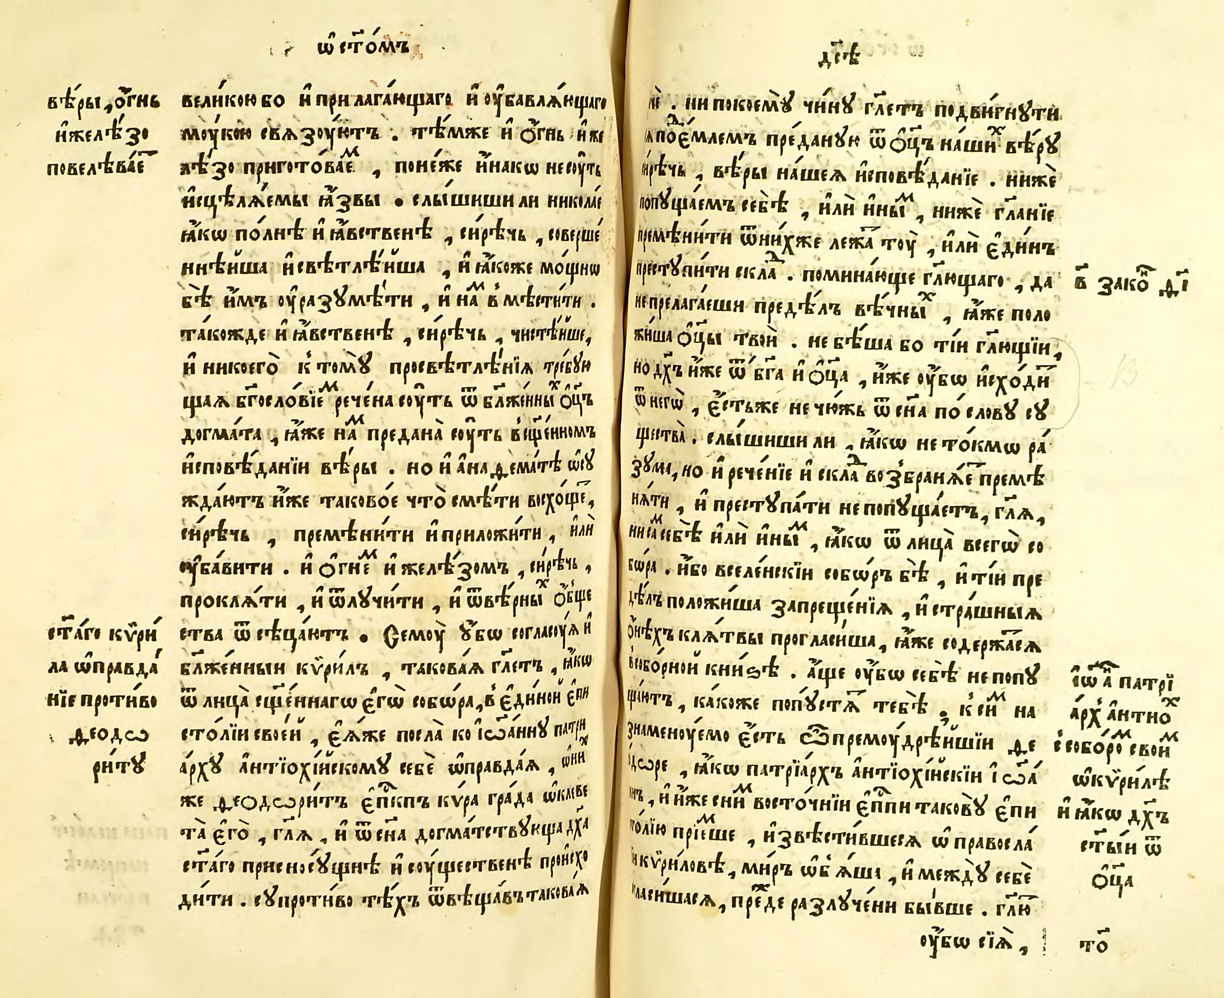 ѡ҆ ст҃о́мъ
вѣ́ры, ѻ҆́гнь
и҆ желѣ́зо
повелѣва́е҆т
вели́кою бо и҆ прилага́ющаго и҆ ѹ҆бавлѧ́ющаго
мѹ́кою свѧзѹ́ютъ . тѣ́мже и҆ ѻ҆́гнь и҆ же
лѣ́зо приготова́ем , поне́же и҆на́кѡ не сѹ́ть
и҆сцѣлѧ́емы ꙗ҆́звы . слы́шиши ли нико́лае
ꙗ҆́кѡ по́лнѣ и҆ ꙗ҆́вственѣ , си́рѣчь , соверше́
ннѣйша и҆ свѣтлѣ́йша , и҆ ꙗ҆́коже мо́щнѡ
бѣ̀ и҆̀мъ ѹ҆разꙋмѣ́ти , и҆ на́м вмѣсти́ти .
та́кожде и҆ ꙗ҆́вственѣ , си́рѣчь , чистѣ́йше,
и҆ никоего̀ к томꙋ̀ просвѣтлѣ́нїѧ тре́бꙋю
щаѧ бг҃осло́вїем рече́на сѹ́ть ѿ бл҃же́нных ѻ҆ц҃ъ
догма́та , ꙗ҆́же на́м предана̀ сѹ́ть в сщ҃е́нномъ
и҆сповѣ́данїи вѣ́ры . но и҆ а҆на́ѳематѣ ѡ҆сꙋ
жда́ютъ и҆́же таково́е что̀ смѣ́ти восхо́щет,
си́рѣчь , премѣни́ти и҆ приложи́ти , и҆лѝ
ѹ҆ба́вити . и҆ ѻ҆гне́м и҆ желѣ́зомъ , си́рѣчь ,
проклѧ́ти , и҆ ѿлꙋчи́ти , и҆ ѿ вѣ́рных ѻ҆́бще
ства ѿсѣца́ютъ . Семѹ̀ ᲂу҆́бѡ согласꙋ́ѧ и҆
бл҃же́нный кѷри́лъ , такова́ѧ гл҃етъ , ꙗ҆́кѡ
ѿ лица̀ сщ҃е́ннагѡ є҆гѡ̀ собо́ра, в є҆ди́ной є҆пи
сто́лїи свое́й , є҆ѧ́же посла̀ ко і҆ѡа́ннꙋ патри
а́рхꙋ а҆нтїохі́йскомꙋ себѐ ѡ҆правда́ѧ , ѡ҆ них
же ѳеодѡри́тъ є҆пⷭ҇кпъ кѵ́ра гра́да ѡ҆клеве
та̀ є҆го̀ , гл҃ѧ , и҆ ѿ сн҃а догма́тствꙋюща дх҃а
ст҃а́го присносꙋ́щнѣ и҆ сѹ́щественѣ происхо
ди́ти . сꙋпроти́во тѣ́хъ ѿвѣща́въ такова́ѧ
ст҃а́го кѷри́
ла ѡ҆правда́
нїе проти́во
ѳеодѡ
ри́тꙋ
дс҃ѣ
не . ни по коемꙋ̀ чи́нꙋ гл҃етъ подви́гнꙋти
поє҆́млемъ пре́данꙋю ѿ ѻ҆ц҃ъ на́ших вѣ́рꙋ
си́рѣчь , вѣ́ры на́шеѧ и҆сповѣ́данїе . нижѐ
попꙋща́емъ себѣ̀ , и҆лѝ и҆ны́м , нижѐ гл҃анїе
премѣни́ти ѿ ни́хже лежа́т тꙋ̀ , и҆лѝ є҆ди́нъ
престꙋпи́ти скла́д . помина́юще гл҃ющаго , да
не прелага́еши предѣ́лъ вѣ́чных , ꙗ҆̀же поло
жи́ша ѻ҆ц҃ы твоѝ . не бѣ́ша бо ті́и гл҃ющїи,
но дх҃ъ и҆́же ѿ бг҃а и҆ ѻ҆ц҃а , и҆́же ѹ҆́бѡ и҆схо́дит
ѿ негѡ̀ , є҆́стьже не чю́жь ѿ сн҃а по сло́вꙋ сꙋ
щества̀ . слы́шиши ли , ꙗ҆́кѡ не то́кмѡ ра́
зꙋма, но и҆ рече́нїе и҆ скла́д возбранѧ́ет премѣ
нѧ́ти , и҆ престꙋпа́ти не попꙋща́етъ, гл҃ѧ,
ни са́м себѣ̀ и҆лѝ и҆ны́м , ꙗ҆́кѡ ѿ лица̀ всегѡ̀ со
бо́ра . и҆́бо вселе́нскїи собо́ръ бѣ̀ , и҆ ті́и пре
дѣ́лъ положи́ша запреще́нїѧ , и҆ стра́шныѧ
ѻ҆нѣ́хъ клѧ́твы прогласи́ша, ꙗ҆̀же содержа́тсѧ
в собо́рной кни́ѕѣ . а҆́ще ѹ҆́бѡ себѣ̀ не попꙋ
ща́ютъ , ка́коже попꙋстѧ́т тебѣ̀ . к си́м на
знаменꙋ́емо є҆́сть ѽ премꙋдрѣ́йшїи ѳе
одѡре , ꙗ҆́кѡ патрїа́рхъ а҆нтїохі́йскїи і҆ѡа́
ннъ , и҆ и҆́же сни́м восто́чнїи є҆пⷭ҇пи такову̀ є҆пи
сто́лїю прїе́мше , и҆звѣсти́вшесѧ ѡ҆ правосла́
вїи кѷри́ловѣ , ми́ръ ѡ҆б̾ѧ́ша , и҆ междꙋ̀ себѐ
гласи́шасѧ, пре́жде разлꙋче́ни бы́вше . гл҃ю
ѹ҆́бѡ сїѧ̀ ,
в҃ зако́н ѳ҃і
і҆ѡа́н патрї
а́рх а҆нтїо́х
с собо́ром свои́м
ѡ҆ кѷри́лѣ
и҆ ꙗ҆́кѡ дх҃ъ
ст҃ы́й ѿ
ѻ҆ц҃а
то